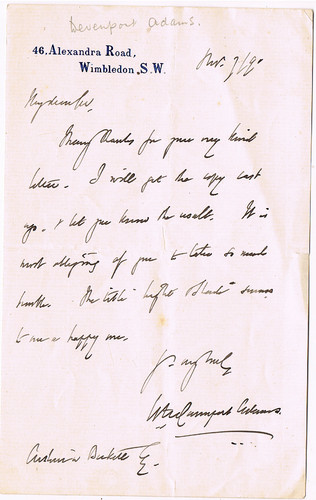 Devenport Adams.
46. Alexandra Road,
Wimbledon. S.W.
Nov. 7/90
My dear Sir,
Many thanks for your very kind
letter. I will get the copy cast
up, & let you know the result. It is
most obliging of you to take so much
trouble. The title "Light & Shade" seems
to me a happy one.
Yrs very truly
W. Davenport Adams.
à Beckett Esq.